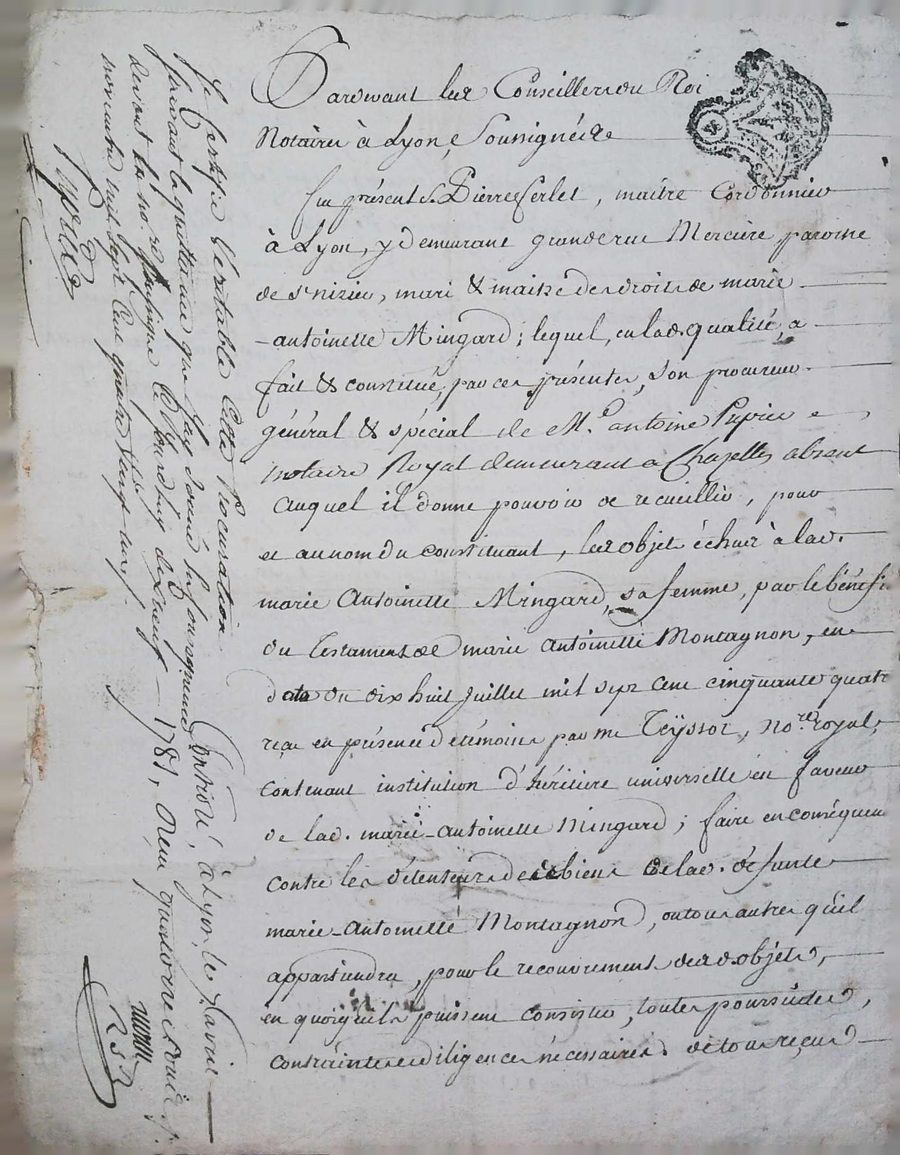 Pardevant les Conseillers du Roi
Notaires à Lyon, Soussignés
fut présent S. Pierre Cerlet, maitre Cordonnier
à Lyon, y demeurant grande rue Merciere paroisse
de St. nizier, mari & maitre des droits de marie
antoinette Mingard; lequel, en lad. qualité, a
fait & constitué, par ces présentes, son procureur
général & spécial de Me. antoine Pupier
notaire Royal demeurant à Chazelles absent
auquel il donne pouvoir de recueillir, pour
et au nom du constituant, les objets échus à lad.
marie Antoinette Mingard, sa femme, par le bénéfi
du testament de marie Antoinette Montagnon, en
date du dix huit juillet mil sept cent cinquante quatre
reçu en présence de témoins par me Teyssot, Nore. royal,
contenant institution d'héritière universelle en faveur
de lad. marie-antoinette Mingard; faire en conséquence
contre les détenteurs des biens de lad. défunte
marie-antoinette Montagnon, ou tous autres qu'il
appartiendra, pour le recouvrement desd. objets,
en quoi qu'ils puissent consister, toutes poursuites,
contraintes et diligences nécessaires. de tous reçus
Je certifie veritable cette procuration
suivant la quittance que j'ay soussigné
devant le no.re
novembre mil sept cent quatre vingt neuf.
Pupier
Controlé à Lyon, le avril
1789, Reçu quinze sols